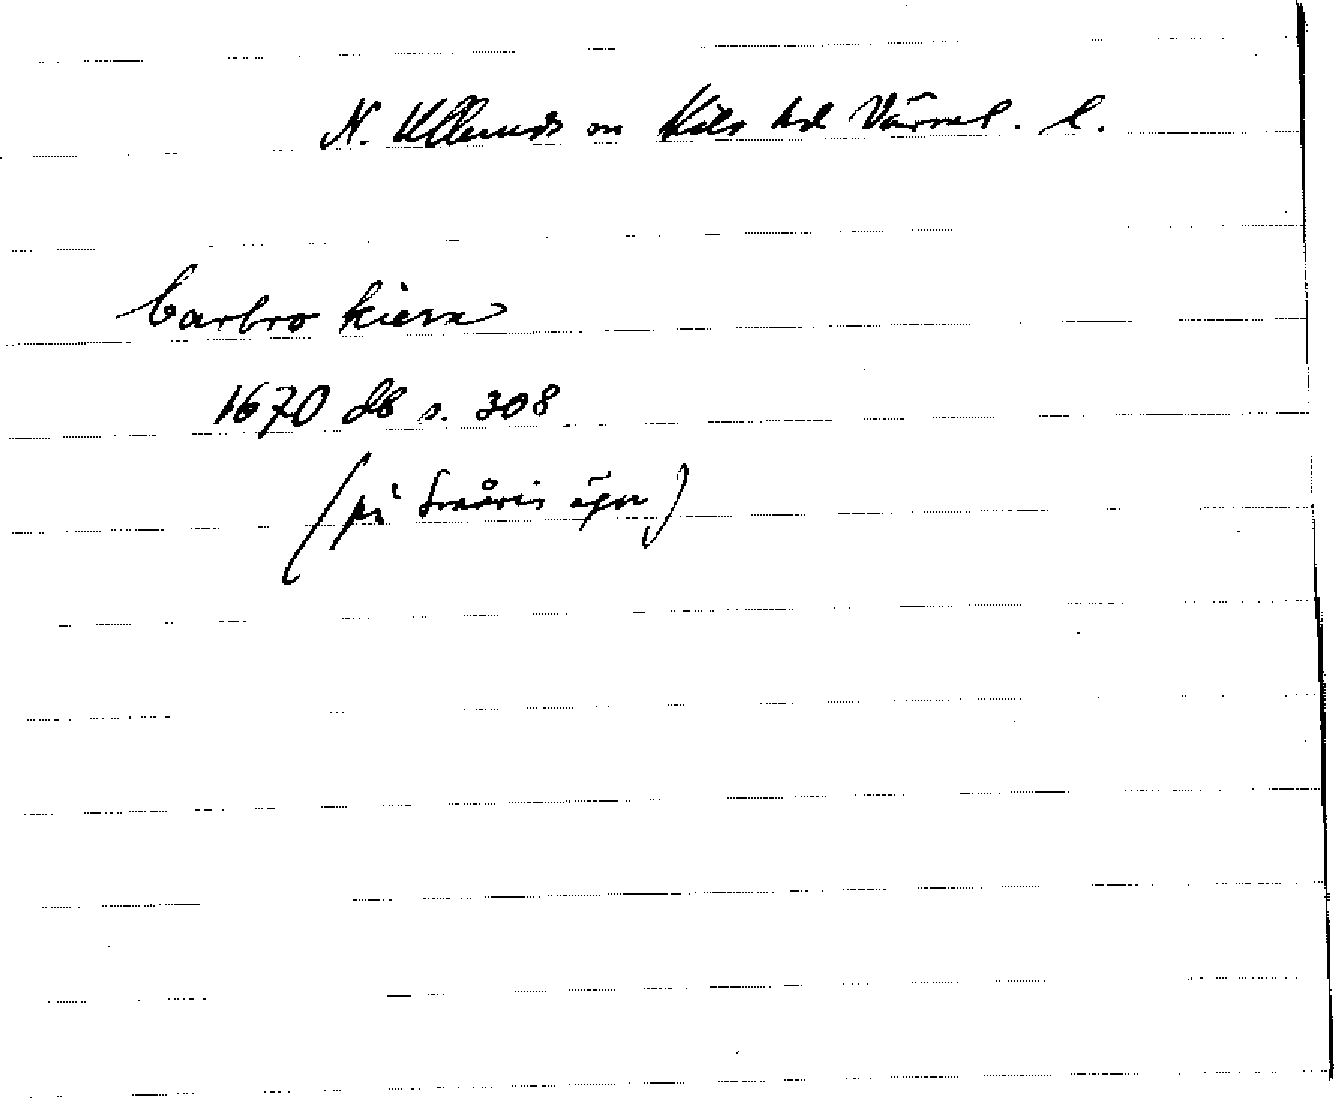 N. Ulleruds sn Kils hd Värml. l.
barbro kiern
1670 db s. 308
(på Småris ägor)